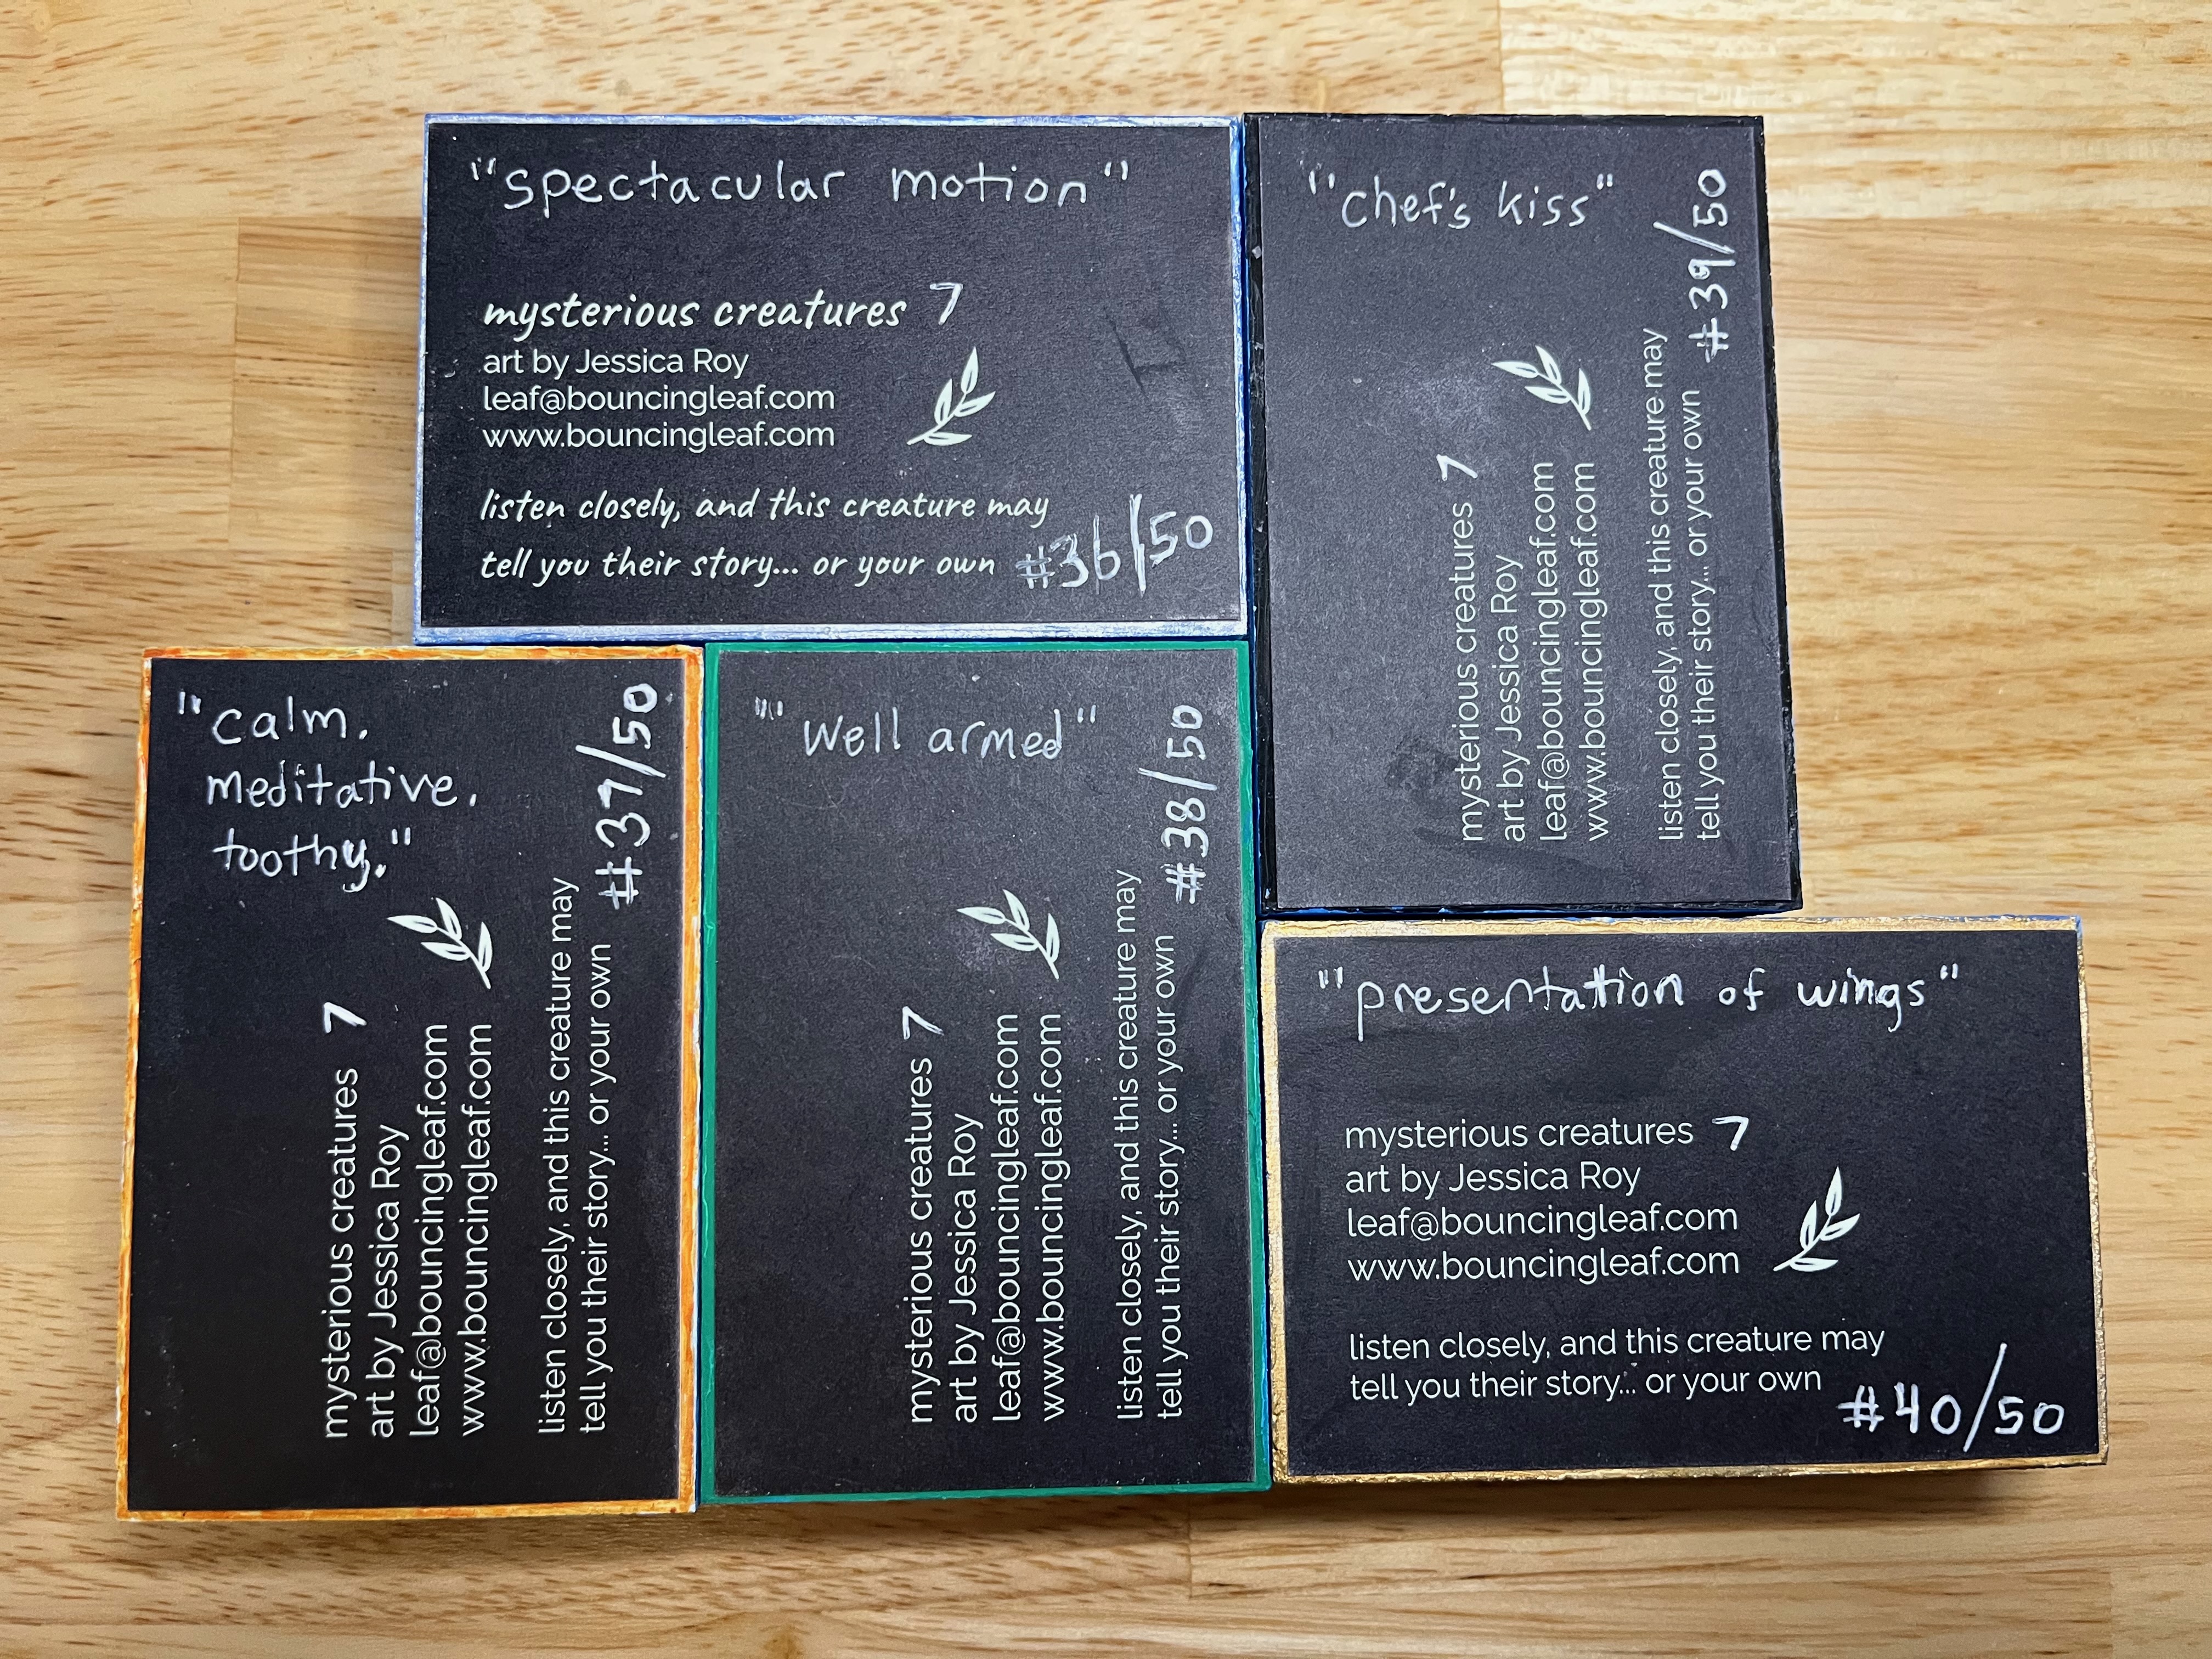 "spectacular motion"
mysterious creatures 7
art by Jessica Roy
leaf@bouncingleaf.com
www.bouncingleaf.com
listen closely, and this creature may
tell you their story... or your own
#36/50
"chef's kiss"
mysterious creatures 7
art by Jessica Roy
leaf@bouncingleaf.com
www.bouncingleaf.com
listen closely, and this creature may
tell you their story... or your own
#39/50
"calm.
meditative.
toothy."
mysterious creatures 7
art by Jessica Roy
leaf@bouncingleaf.com
www.bouncingleaf.com
listen closely, and this creature may
tell you their story... or your own
#37/50
"well armed"
mysterious creatures 7
art by Jessica Roy
leaf@bouncingleaf.com
www.bouncingleaf.com
listen closely, and this creature may
tell you their story... or your own
#38/50
"presentation of wings"
mysterious creatures 7
art by Jessica Roy
leaf@bouncingleaf.com
www.bouncingleaf.com
listen closely, and this creature may
tell you their story... or your own
#40/50